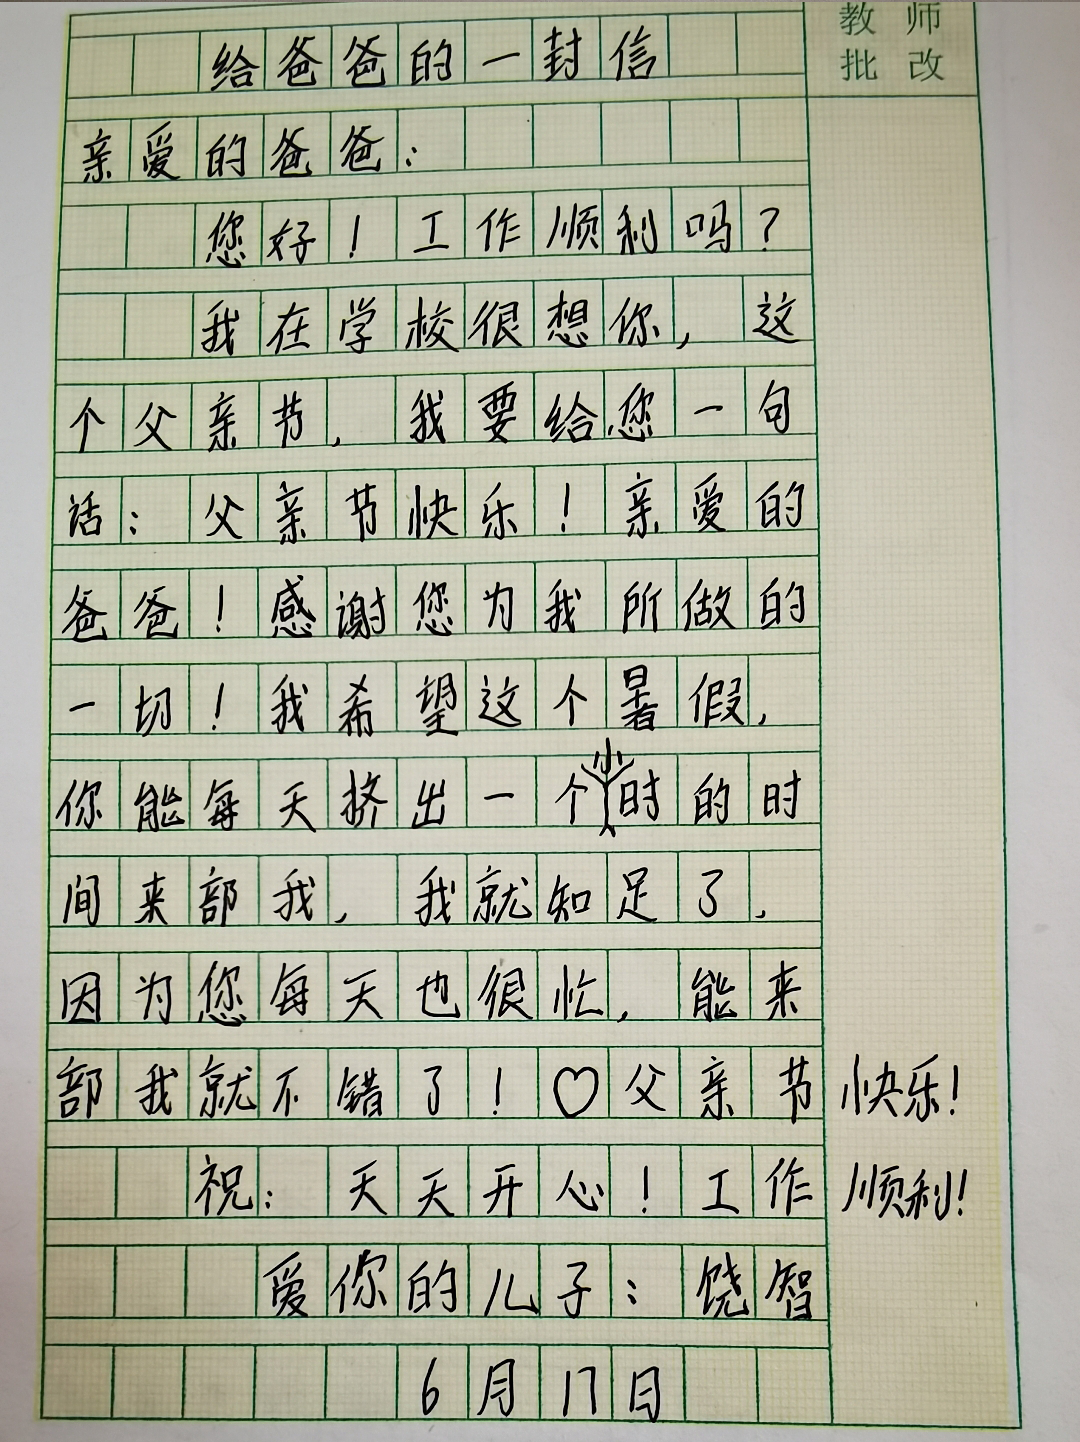 教师
批改
给爸爸的一封信
亲爱的爸爸：
您好！工作顺利吗？
我在学校很想你，这
个父亲节，我要给您一句
话：父亲节快乐！亲爱的
爸爸！感谢您为我所做的
一切！我希望这个暑假，
你能每天挤出一个小时的时
间来部我，我就知足了，
因为您每天也很忙，能来
部我就不错了！♡父亲节快乐！
祝：天天开心！工作顺利！
爱你的儿子：饶智
6月17日